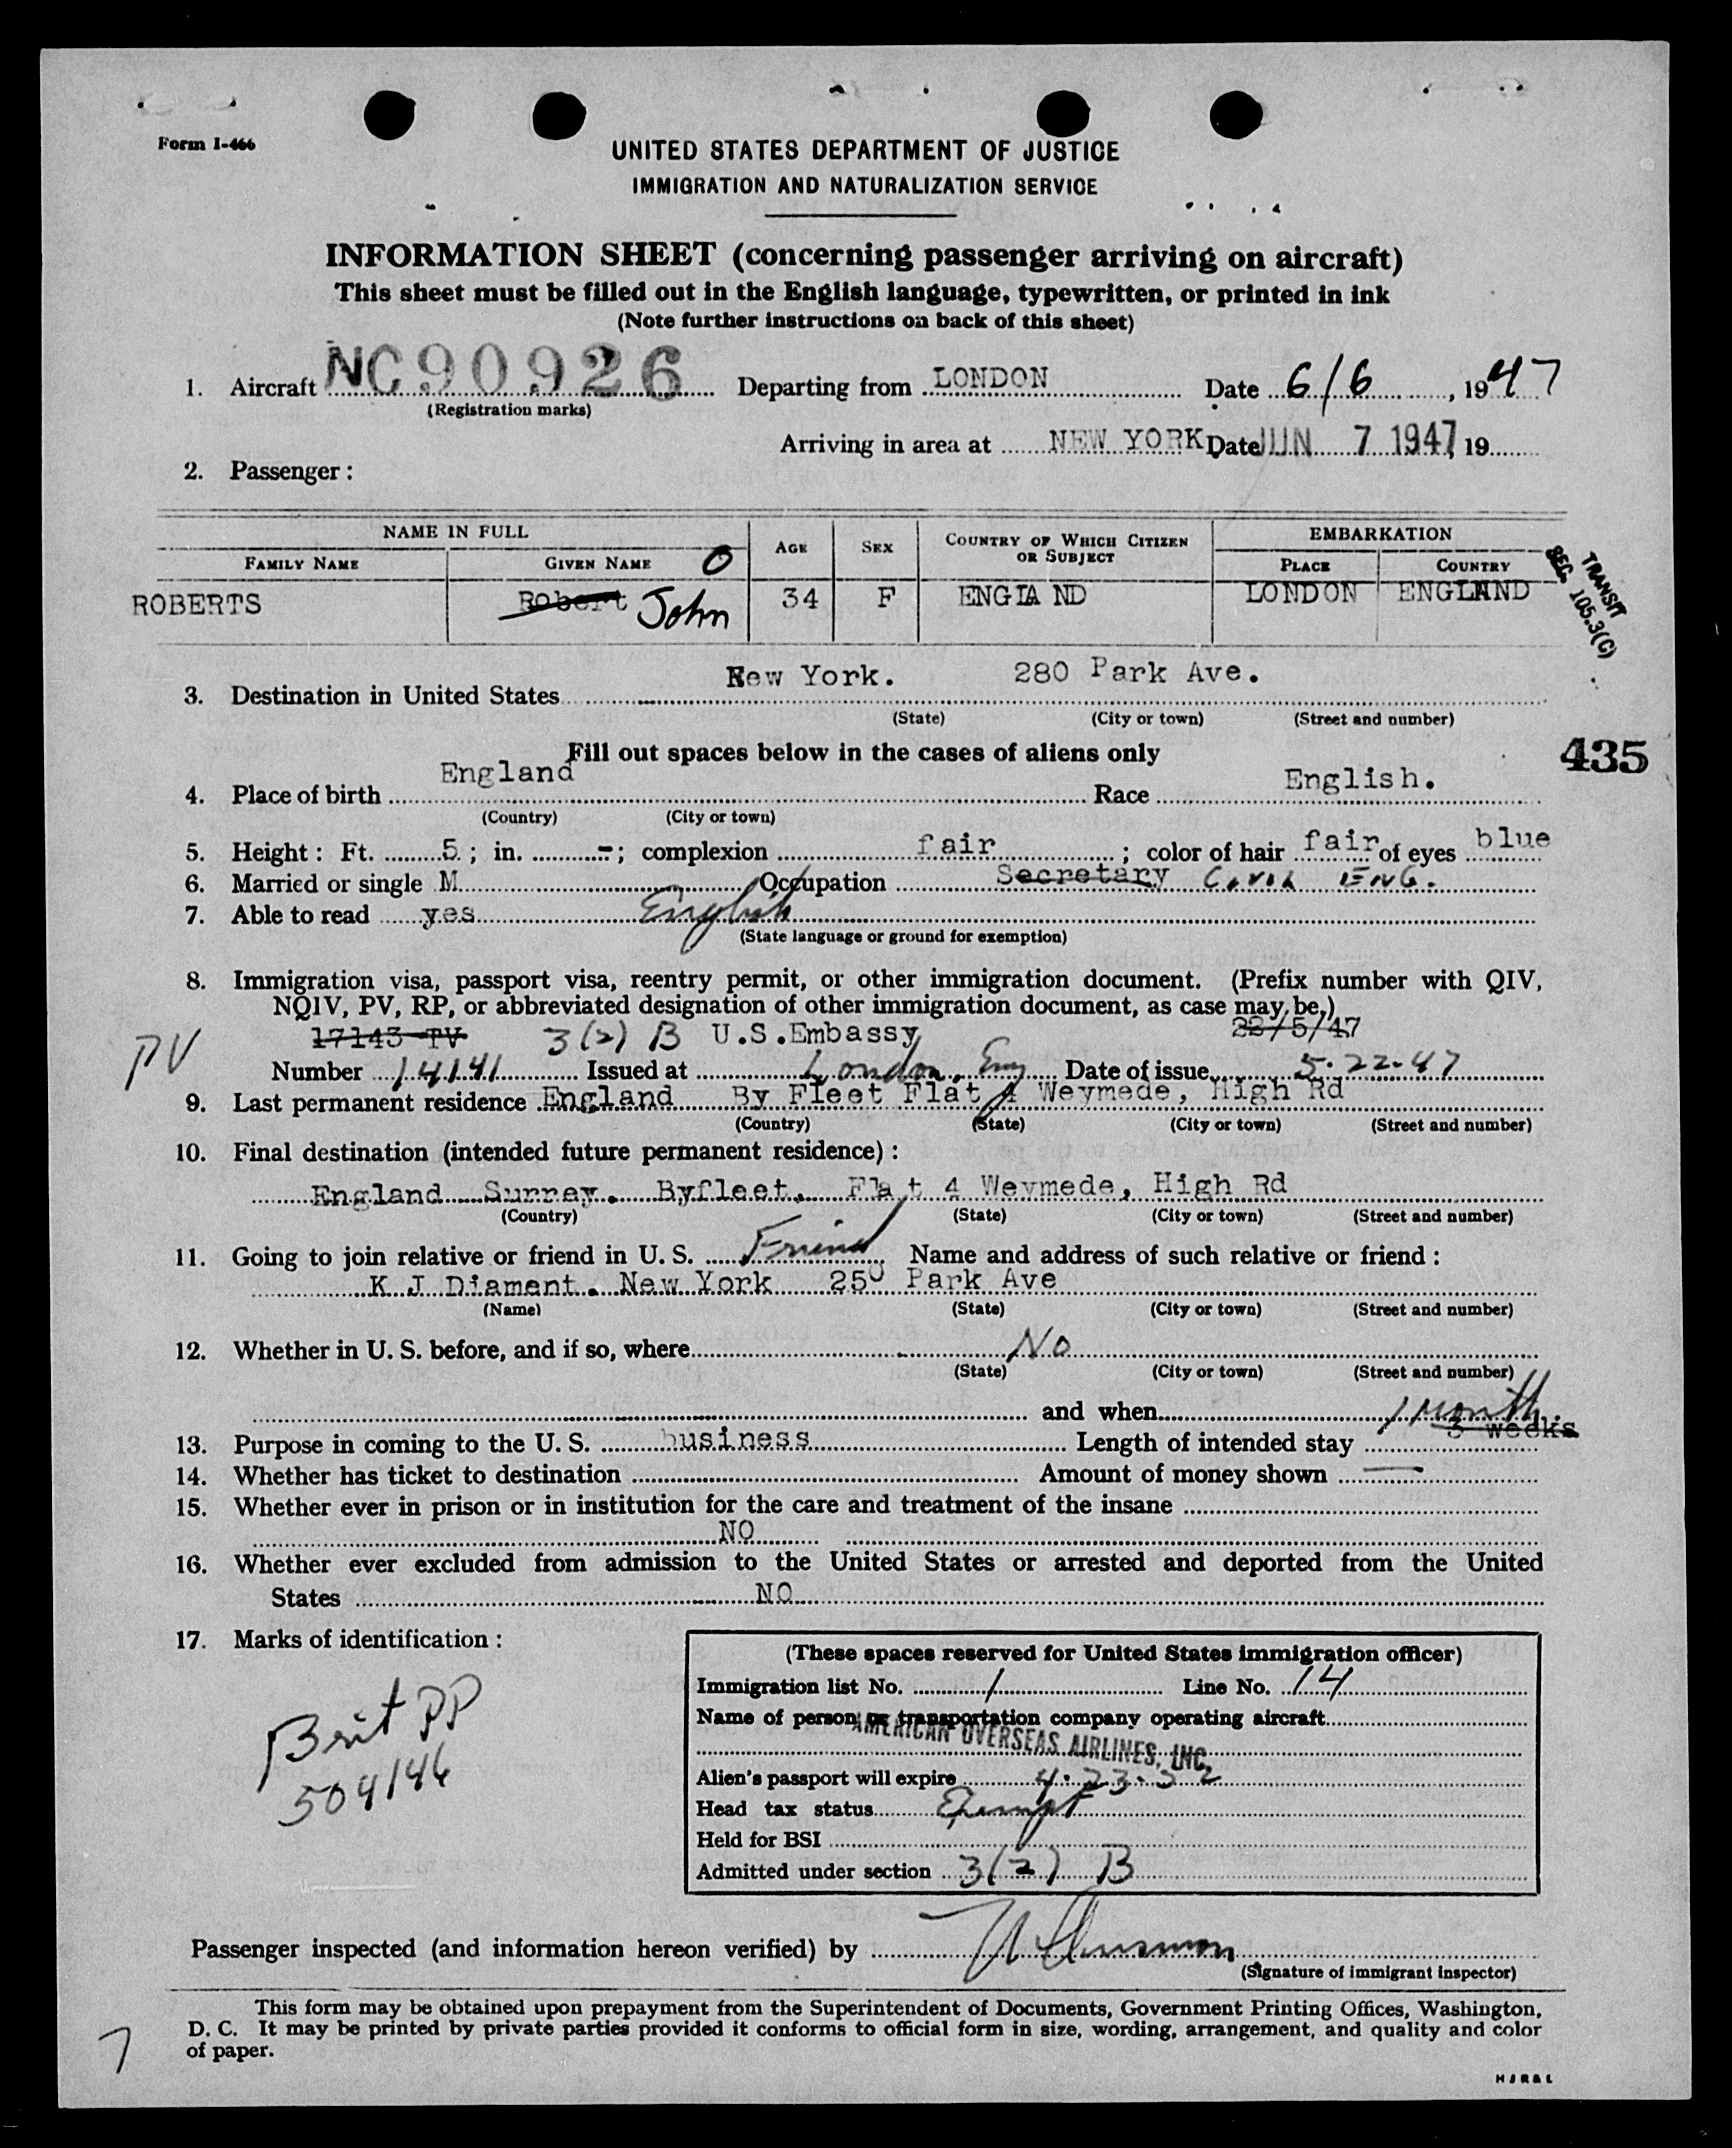 Form I-466
UNITED STATES DEPARTMENT OF JUSTICE
IMMIGRATION AND NATURALIZATION SERVICE
INFORMATION SHEET (concerning passenger arriving on aircraft)
This sheet must be filled out in the English language, typewritten, or printed in ink
(Note further instructions on back of this sheet)
1. Aircraft NC90926 Departing from LONDON Date 6/6, 1947
(Registration marks)
Arriving in area at NEW YORK Date JUN 7 1947, 19
2. Passenger:
NAME IN FULL
FAMILY NAME
GIVEN NAME O
AGE
SEX
COUNTRY OF WHICH CITIZEN OR SUBJECT
EMBARKATION
PLACE
COUNTRY
ROBERTS Robert John 34 F ENGIA ND LONDON ENGLAND
TRANSIT
SEC. 105.3(C)
3. Destination in United States New York. 280 Park Ave.
(State) (City or town) (Street and number)
Fill out spaces below in the cases of aliens only
435
4. Place of birth England Race English.
(Country) (City or town)
5. Height: Ft. 5; in. -; complexion fair; color of hair fair of eyes blue
6. Married or single M Occupation Secretary CIVIL ENG.
7. Able to read yes English
(State language or ground for exemption)
8. Immigration visa, passport visa, reentry permit, or other immigration document. (Prefix number with QIV,
NQIV, PV, RP, or abbreviated designation of other immigration document, as case may be.)
17143 TV 3(2) B U.S.Embassy 22/5/47
PV Number 14141 Issued at London, Eng Date of issue 5-22-47
9. Last permanent residence England By Fleet Flat 4 Weymede, High Rd
(Country) (State) (City or town) (Street and number)
10. Final destination (intended future permanent residence):
England Surrey. Byfleet. Flat 4 Weymede, High Rd
(Country) (State) (City or town) (Street and number)
11. Going to join relative or friend in U. S. Friend Name and address of such relative or friend:
K J Diament. New York 250 Park Ave
(Name) (State) (City or town) (Street and number)
12. Whether in U. S. before, and if so, where No
(State) (City or town) (Street and number)
and when 1 month
13. Purpose in coming to the U. S. business Length of intended stay 3 weeks
14. Whether has ticket to destination Amount of money shown —
15. Whether ever in prison or in institution for the care and treatment of the insane
NO
16. Whether ever excluded from admission to the United States or arrested and deported from the United
States NO
17. Marks of identification:
Brit PP
504146
(These spaces reserved for United States immigration officer)
Immigration list No. 1 Line No. 14
Name of person or transportation company operating aircraft
AMERICAN OVERSEAS AIRLINES, INC.
Alien's passport will expire 4-23-52
Head tax status Exempt
Held for BSI
Admitted under section 3(2) B
Passenger inspected (and information hereon verified) by
(Signature of immigrant inspector)
This form may be obtained upon prepayment from the Superintendent of Documents, Government Printing Offices, Washington,
D. C. It may be printed by private parties provided it conforms to official form in size, wording, arrangement, and quality and color
of paper.
7
HJR&L